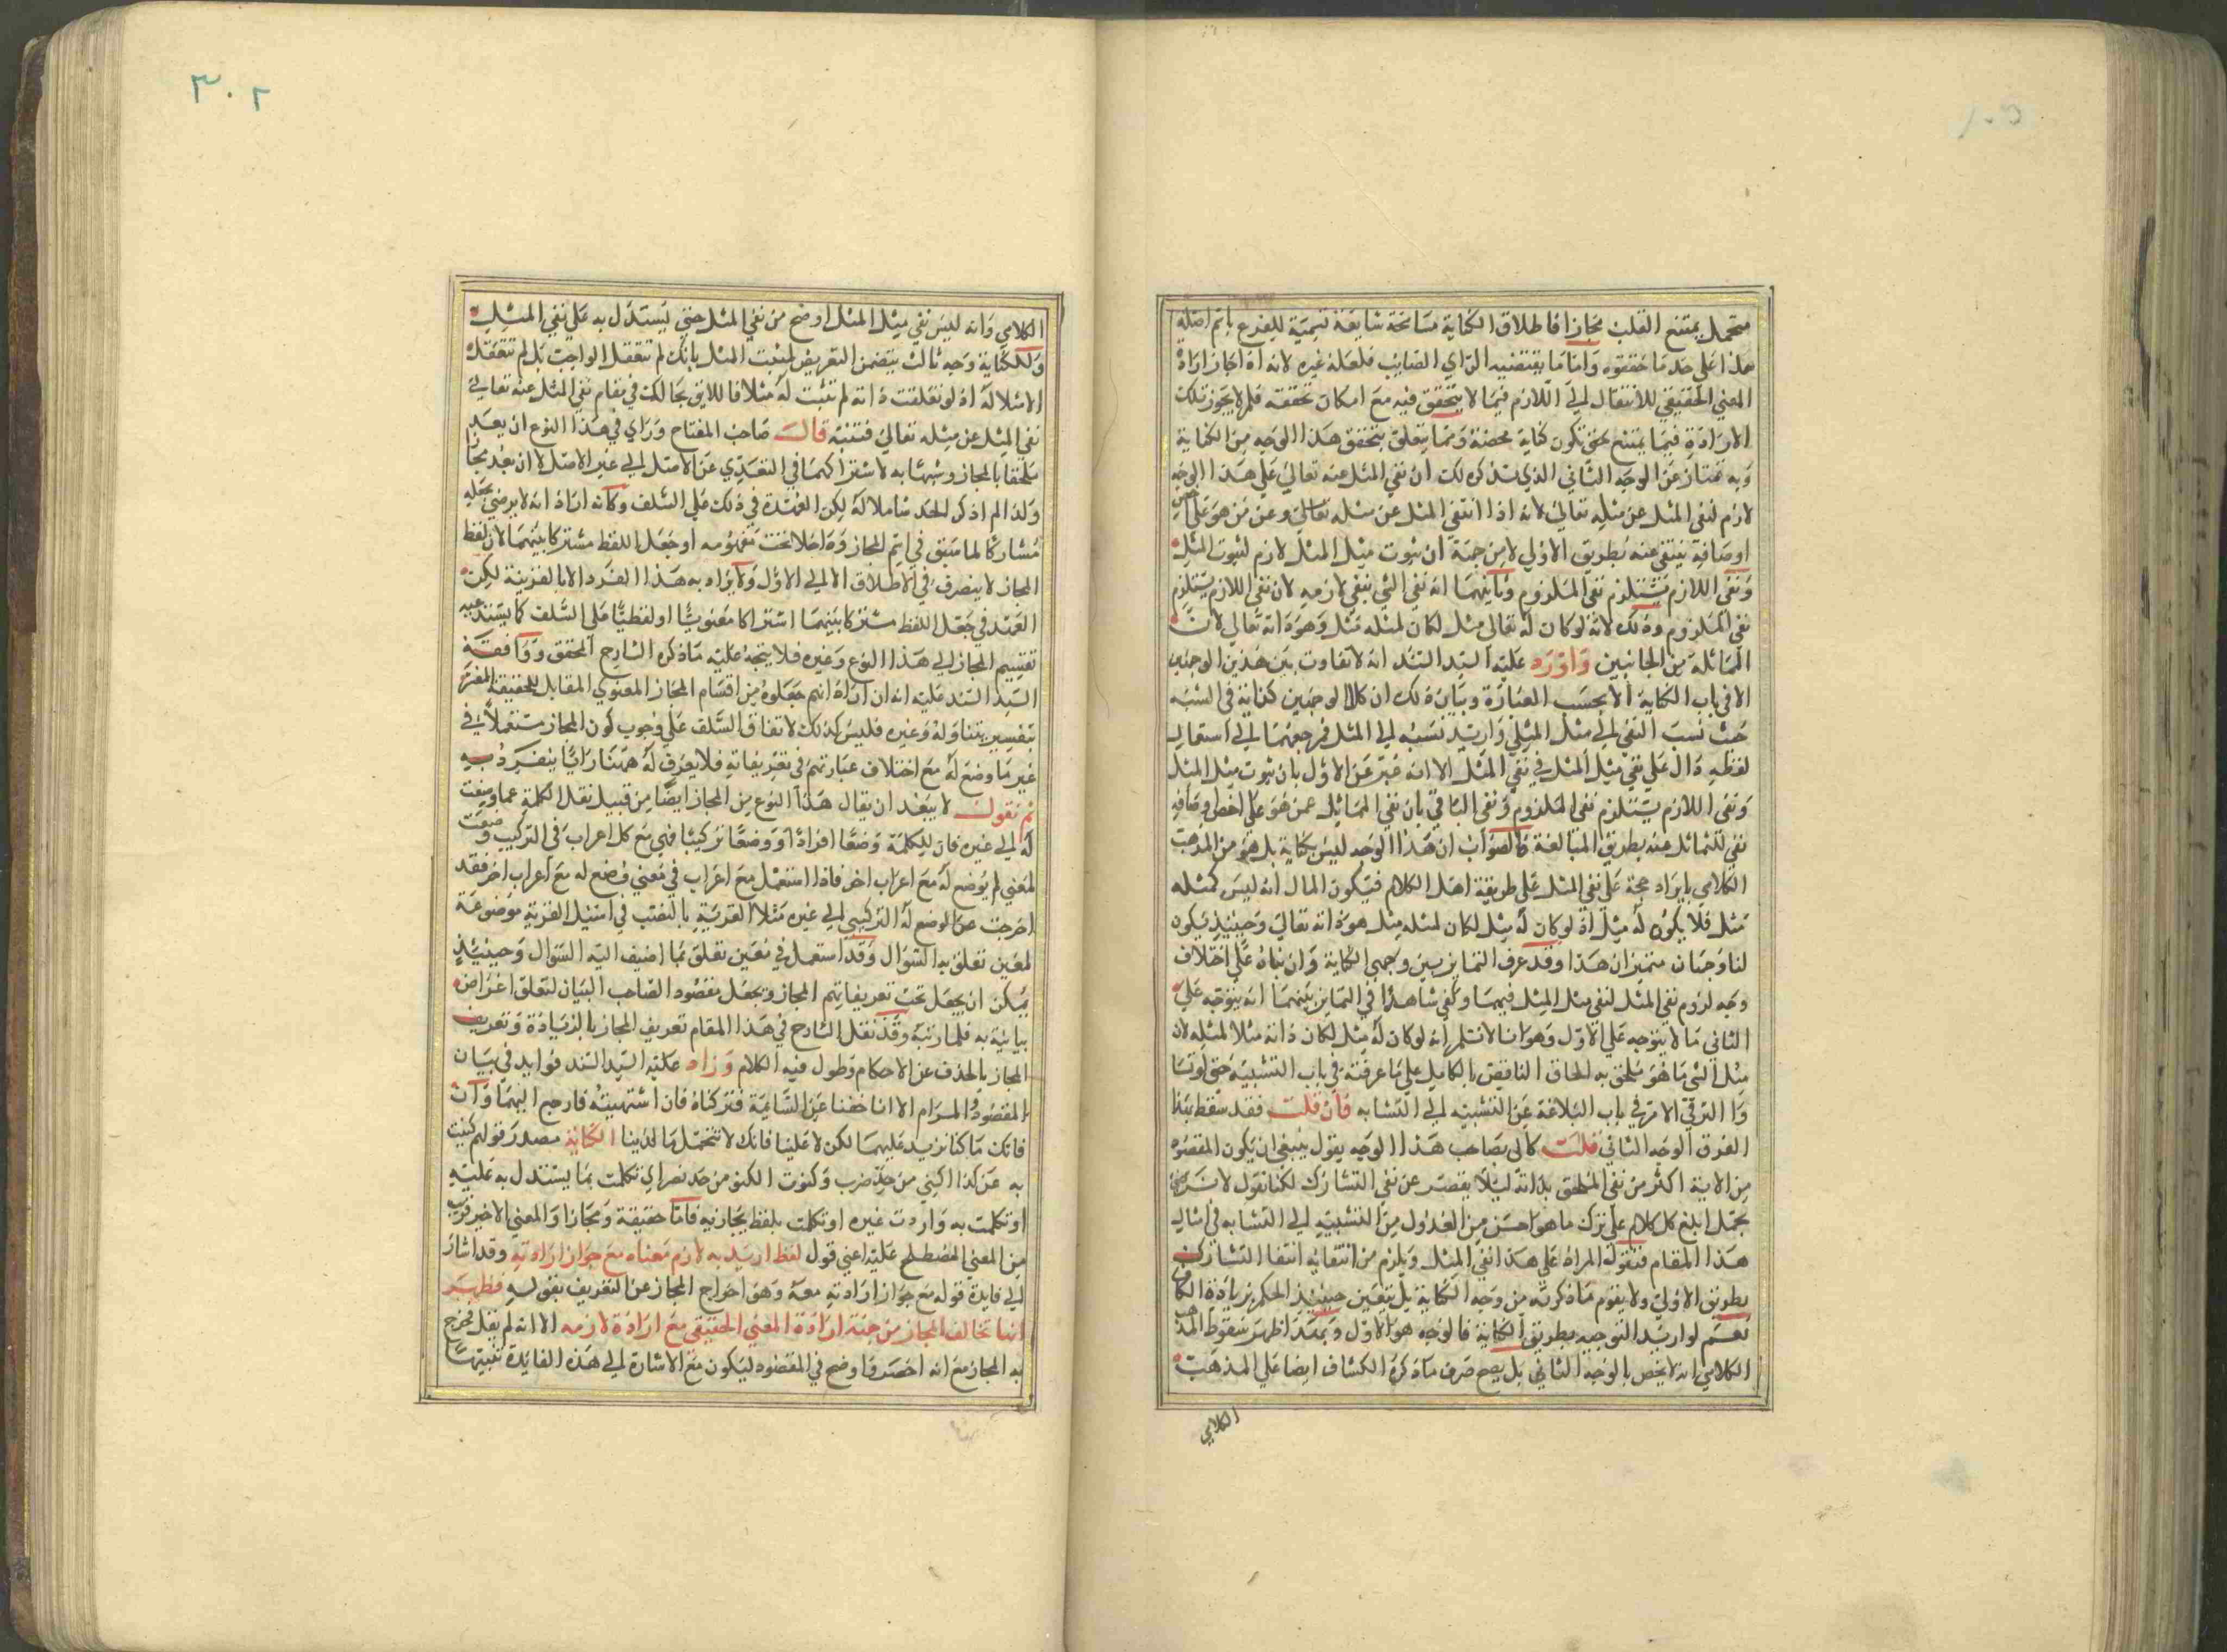 متحمل يمتنع القلب مجازا فاطلاق الكناية مسامحة شايعة تسمية للفرع باسم اصله
هذا على حد ما حققوه واما ما يقتضيه الراي الصايب فلعله غيره لانه اذا جاز ارادة
المعنى الحقيقي للانتقال الى اللازم فيما لا يتحقق فيه مع امكان تحققه فلم لا يجوز تلك
الارادة فيما يمتنع حتى تكون كناية محضة ومما يتعلق بتحقق هذا الوجه من الكناية
وبه تمتاز عن الوجه الثاني الذي سنذكره لك ان نفي المثل عنه تعالى على هذا الوجه
لازم لنفي المثل عن مثله تعالى لانه اذا انتفى المثل عن مثله تعالى وعن من هو على اخص
اوصافه ينتفي عنه بطريق الاولى لا من جهة ان ثبوت مثل المثل لازم لثبوت المثل
ونفي اللازم يستلزم نفي الملزوم وثانيهما انه نفي الشي بنفي لازمه لان نفي اللازم يستلزم
نفي الملزوم وذلك لانه لو كان له تعالى مثل لكان لمثله مثل وهو ذاته تعالى لان
المماثلة من الجانبين واورد عليه السيد السند انه لا تفاوت بين هذين الوجهين
الا في باب الكناية الا بحسب العبارة وبيان ذلك ان كلا الوجهين كناية في النسبة
حيث نسب النفي الى مثل المثل واريد نسبه الى المثل فمرجعهما الى استعمال
لفظه دال على نفي مثل المثل في نفي المثل الا انه عبر عن الاول بان ثبوت مثل المثل
ونفي اللازم يستلزم نفي الملزوم ونفي الباقي بان نفي المماثل عمن هو على اخص اوصافه
نفي للتماثل عنه بطريق المبالغة فالصواب ان هذا الوجه ليس بكناية بل هو من المذهب
الكلامي بايراد حجة على نفي المثل على طريقة اهل الكلام فيكون المال انه ليس كمثله
مثل فلا يكون له مثل اذ لو كان له مثل لكان لمثله مثل هو ذاته تعالى وحينئذ يكون
لنا وجهان متميزان هذا وقد عرف التمايز بين وجهي الكناية وان بناه على اختلاف
وجه لزوم نفي المثل لنفي مثل المثل فيهما وكفى شاهدا في التمايز بينهما انه يتوجه على
الثاني ما لا يتوجه على الاول وهو انا لا نسلم انه لو كان له مثل لكان ذاته مثلا لمثله لان
مثل الشي ما هو ملحق به الحاق الناقص بالكامل على ما عرفته في باب التشبيه حتى لو تسا
وا الترقي الامر في باب البلاغة عن التشبيه الى التشابه فان قلت فقد سقط بهذا
الفرق الوجه الثاني قلت كان صاحب هذا الوجه يقول ينبغي ان يكون المقصود
من الاية اكثر من نفي الملحق بذاته لئلا يقصر عن نفي التشارك لكنا نقول لا
يحمل ابلغ كل كلام على ترك ما هو احسن من العدول من التشبيه الى التشابه في امثال
هذا المقام فنقول المراد على هذا نفي المثل ويلزم من انتفائه انتفا التشارك
بطريق الاولى ولا يقوم ما ذكرته من وجه الكناية بل يتعين حينئذ الحكم بزيادة الكاف
نعم لو اريد التوجيه بطريق الكناية فالوجه هو الاول وبهذا ظهر سقوط المذهب
الكلامي انه لا يخص بالوجه الثاني بل يصح صرف ما ذكره الكشاف ايضا على المذهب
الكلامي
٣٠٢
الكلامي وانه ليس نفي مثل المثل اوضح من نفي المثل حتى يستدل به على نفي المثل
وللكناية وجه ثالث يتضمن التعريض لمثبت المثل بانك لم تتعقل الواجب بل لم تتعقل
الا مثلا له اذ لو تعلقت ذاته لم تثبت له مثلا فاللايق بحالك في مقام نفي المثل عنه تعالى
نفي المثل عن مثله تعالى فتنبه قال صاحب المفتاح ورايي في هذا النوع ان يعد
ملحقا بالمجاز وشبها به لاشتراكهما في التعدي عن الاصل الى غير الاصل لا ان يعد مجازا
ولذا لم اذكر الحد شاملا له لكن العهدة في ذلك على السلف وكانه اراد انه لا يرضى بجعله
مشاركا لما سبق في اسم المجاز وداخلا تحت مفهومه او جعل اللفظ مشتركا بينهما لان لفظ
المجاز لا ينصرف في الاطلاق الا الى الاول ولا يراد به هذا الفرد الا بالقرينة لكن
العهد في جعل اللفظ مشتركا بينهما اشتراكا معنويا او لفظيا على السلف كما يستدعيه
تقسيم المجاز الى هذا النوع وغيره فلا يتجه عليه ما ذكره الشارح المحقق ووافقه
السيد السند عليه انه ان اراد انهم جعلوه من اقسام المجاز المعنوي المقابل للحقيقة المفسر
بتفسير يتناوله وغيره فليس كذلك لاتفاق السلف على وجوب كون المجاز مستعملا في
غير ما وضع له مع اختلاف عباراتهم في تعريفاته فلا يعرف له ههنا رايا ينفرد به
ثم نقول لا يبعد ان يقال هذا النوع من المجاز ايضا من قبيل نقل الكلمة عما وضعت
له الى غيره فان للكلمة وضعا افرادا ووضعا تركيبا فهي مع كل اعراب في التركيب وضعت
لمعنى لم يوضع له مع اعراب اخر فاذا استعمل مع اعراب في معنى وضع له مع اعراب اخر فقد
اخرجت عن الوضع له التركيبي الى غيره مثلا القرية بالنصب في اسئل القرية موضوعة
لمعين تعلق به السؤال وقد استعمل في معين تعلق بما اضيف اليه السؤال وحينئذ
يمكن ان يجعل تحت تعريفاتهم المجاز ويجعل مقصود الصاحب البيان لتعلق اغراض
بيانية به فلما رتبه وقد نقل الشارح في هذا المقام تعريف المجاز بالزيادة وتعريف
المجاز بالحذف عن الاحكام وطول فيه الكلام وزاد عليه السيد السند فوايد في بيان
المقصود والمرام الا انا خفنا عن السآمة فتركناه فان اشتهيته فارجع اليهما وان
فاتك ما كنا نزيد عليهما لكن لا علينا فانك لا تتحمل ما لدينا الكناية مصدر قولهم كنيت
به عن كذا اكني من حد ضرب وكنوت اكنو من حد نصر اي تكلمت بما يستدل به عليه
او تكلمت به واردت غيره او تكلمت بلفظ يجاذبه فاما حقيقة ومجازا والمعنى الاخير قريب
من المعنى المصطلح عليه اعني قوله لفظ اريد به لازم معناه مع جواز ارادته وقد اشار
الى فايدة قوله مع جواز ارادته معه وهو اخراج المجاز عن التعريف بقوله فظهر
انها تخالف المجاز من جهة ارادة المعنى الحقيقي مع ارادة لازمه الا انه لم يقل فخرج
به المجاز مع انه اخصر واوضح في المقصود ليكون مع الاشارة الى هذه الفايدة تنبيها